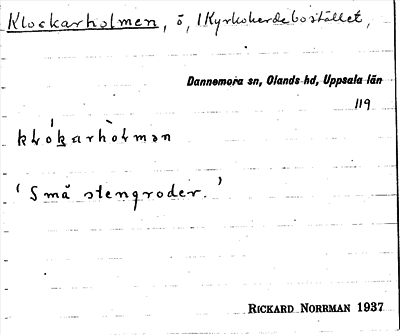 Klockarholmen, ö, 1 Kyrkoherdebostället,
Dannemora sn, Olands hd, Uppsala län
119
klók̬arhòlmən
‘Små stengroder.’
RICKARD NORRMAN 1937